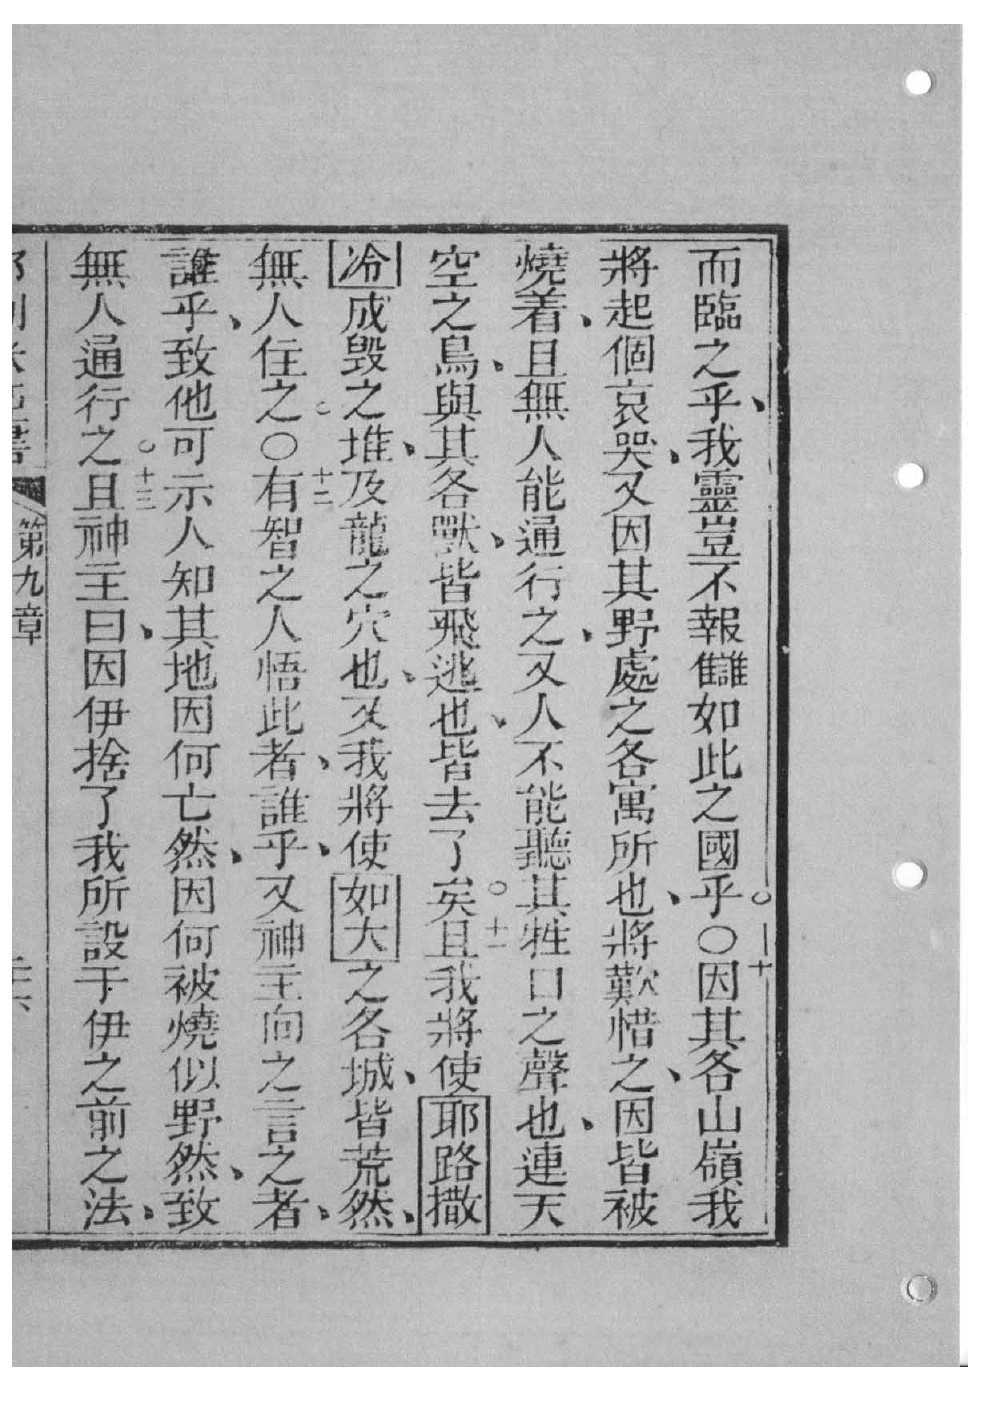 而臨之乎、我靈豈不報讎如此之國乎○十因其各山嶺我
將起個哀哭、又因其野處之各寓所也、將歎惜之、因皆被
燒着、且無人能通行之、又人不能聽其牲口之聲也、連天
空之鳥、與其各獸、皆飛逃也、皆去了矣。十一且我將使耶路撒
冷成毀之堆、及龍之穴也、又我將使如大之各城、皆荒然、
無人住之。○十二有智之人悟此者、誰乎、又神主向之言之者、
誰乎、致他可示人知其地因何亡然、因何被燒似野然、致
無人通行之。十三且神主曰、因伊捨了我所設于伊之前之法、
第九章